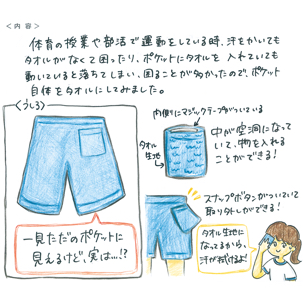 ＜内容＞
体育の授業や部活で運動をしている時、汗をかいても
タオルがなくて困ったり、ポケットにタオルを入れていても
動いていると落ちてしまい、困ることが多かったので、ポケット
自体をタオルにしてみました。
＜うしろ＞
内側にマジックテープがついている
タオル
生地
中が空洞になって
いて、物を入れる
ことができる！
一見ただのポケットに
見えるけど、実は…!?
スナップボタンがついていて
取り外しができる！
タオル生地に
なってるから、
汗が拭けるよ！